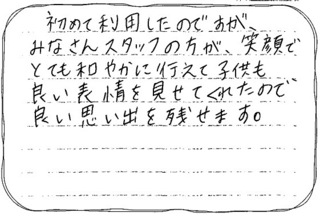 初めて利用したのですが、
みなさんスタッフの方が、笑顔で
とても和やかに行えて子供も
良い表情を見せてくれたので、
良い思い出を残せます。